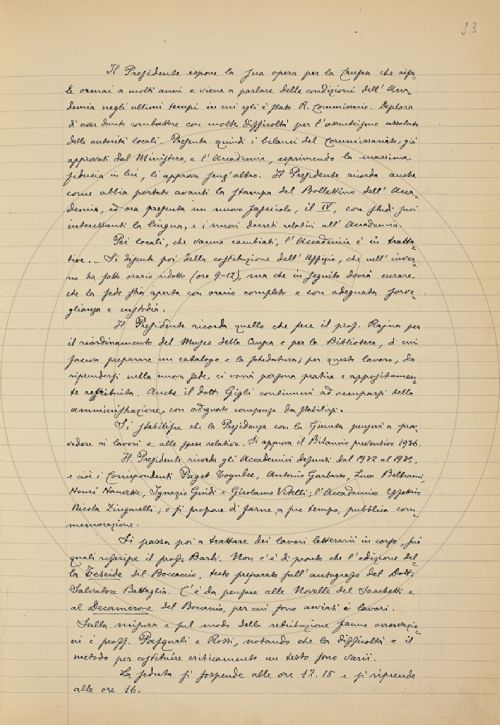 53
Il Presidente espone la sua opera per la Crusca che
è ormai a molti anni e viene a parlare delle condizioni dell'Acca-
demia negli ultimi tempi in cui egli è stato R. Commissario. Deplora
d'aver dovuto combattere con molte difficoltà per l'assenteismo assoluto
delle autorità locali. Presenta quindi i bilanci del Commissariato, già
approvati dal Ministero, e l'Accademia, esprimendo la massima
fiducia in lui, li approva senz'altro. Il Presidente ricorda anche
come abbia portato avanti la stampa del Bollettino dell'Acca-
demia, ed ora presenta un nuovo fascicolo, il IV, con studi
interessanti la lingua, e i nuovi decreti relativi all'Accademia.
Pei locali, che vanno cambiati, l'Accademia è in tratta-
tive. – Si disputa poi della costituzione dell'Uffizio, che nell'inver-
no ha fatto orario ridotto (ore 9-12), ma che in seguito dovrà curare
che la sede stia aperta con orario completo e con adeguata sorve-
glianza e custodia.
Il Presidente ricorda quello che fece il prof. Rajna per
il riordinamento del Museo della Crusca e per la Biblioteca, di cui
faceva preparare un catalogo e la schedatura; per questo lavoro, da
riprendersi nella nuova sede, ci vorrà persona pratica e appositamen-
te retribuita. Anche il dott. Gigli continuerà ad occuparsi della
amministrazione, con adeguato compenso da stabilirsi.
Si stabilisce che la Presidenza con la Giunta pensi a prov-
vedere ai lavori e alle spese relative. Si approva il Bilancio preventivo 1936.
Il Presidente ricorda gli Accademici defunti dal 1932 al 1935,
e cioè i Corrispondenti Paget Toynbee, Antonio Garbasso, Luca Beltrami,
Henri Hauvette, Ignazio Guidi e Girolamo Vitelli; l'Accademico effettivo
Nicola Zingarelli; e si propone di farne, a suo tempo, pubblica com-
memorazione.
Si passa poi a trattare dei lavori letterari in corso,
quali riferisce il prof. Barbi. Non c'è di pronto che l'edizione del-
la Teseide del Boccaccio, testo preparato sull'autografo dal Dott.
Salvatore Battaglia. C'è da pensare alle Novelle del Sacchetti e
al Decamerone del Boccaccio, per cui sono avviati i lavori.
Sulla misura e sul modo della retribuzione fanno osservazio-
ni i proff. Pasquali e Rossi, notando che la difficoltà e il
metodo per costituire criticamente un testo sono varii.
La seduta si sospende alle ore 12.15 e si riprende
alle ore 16.